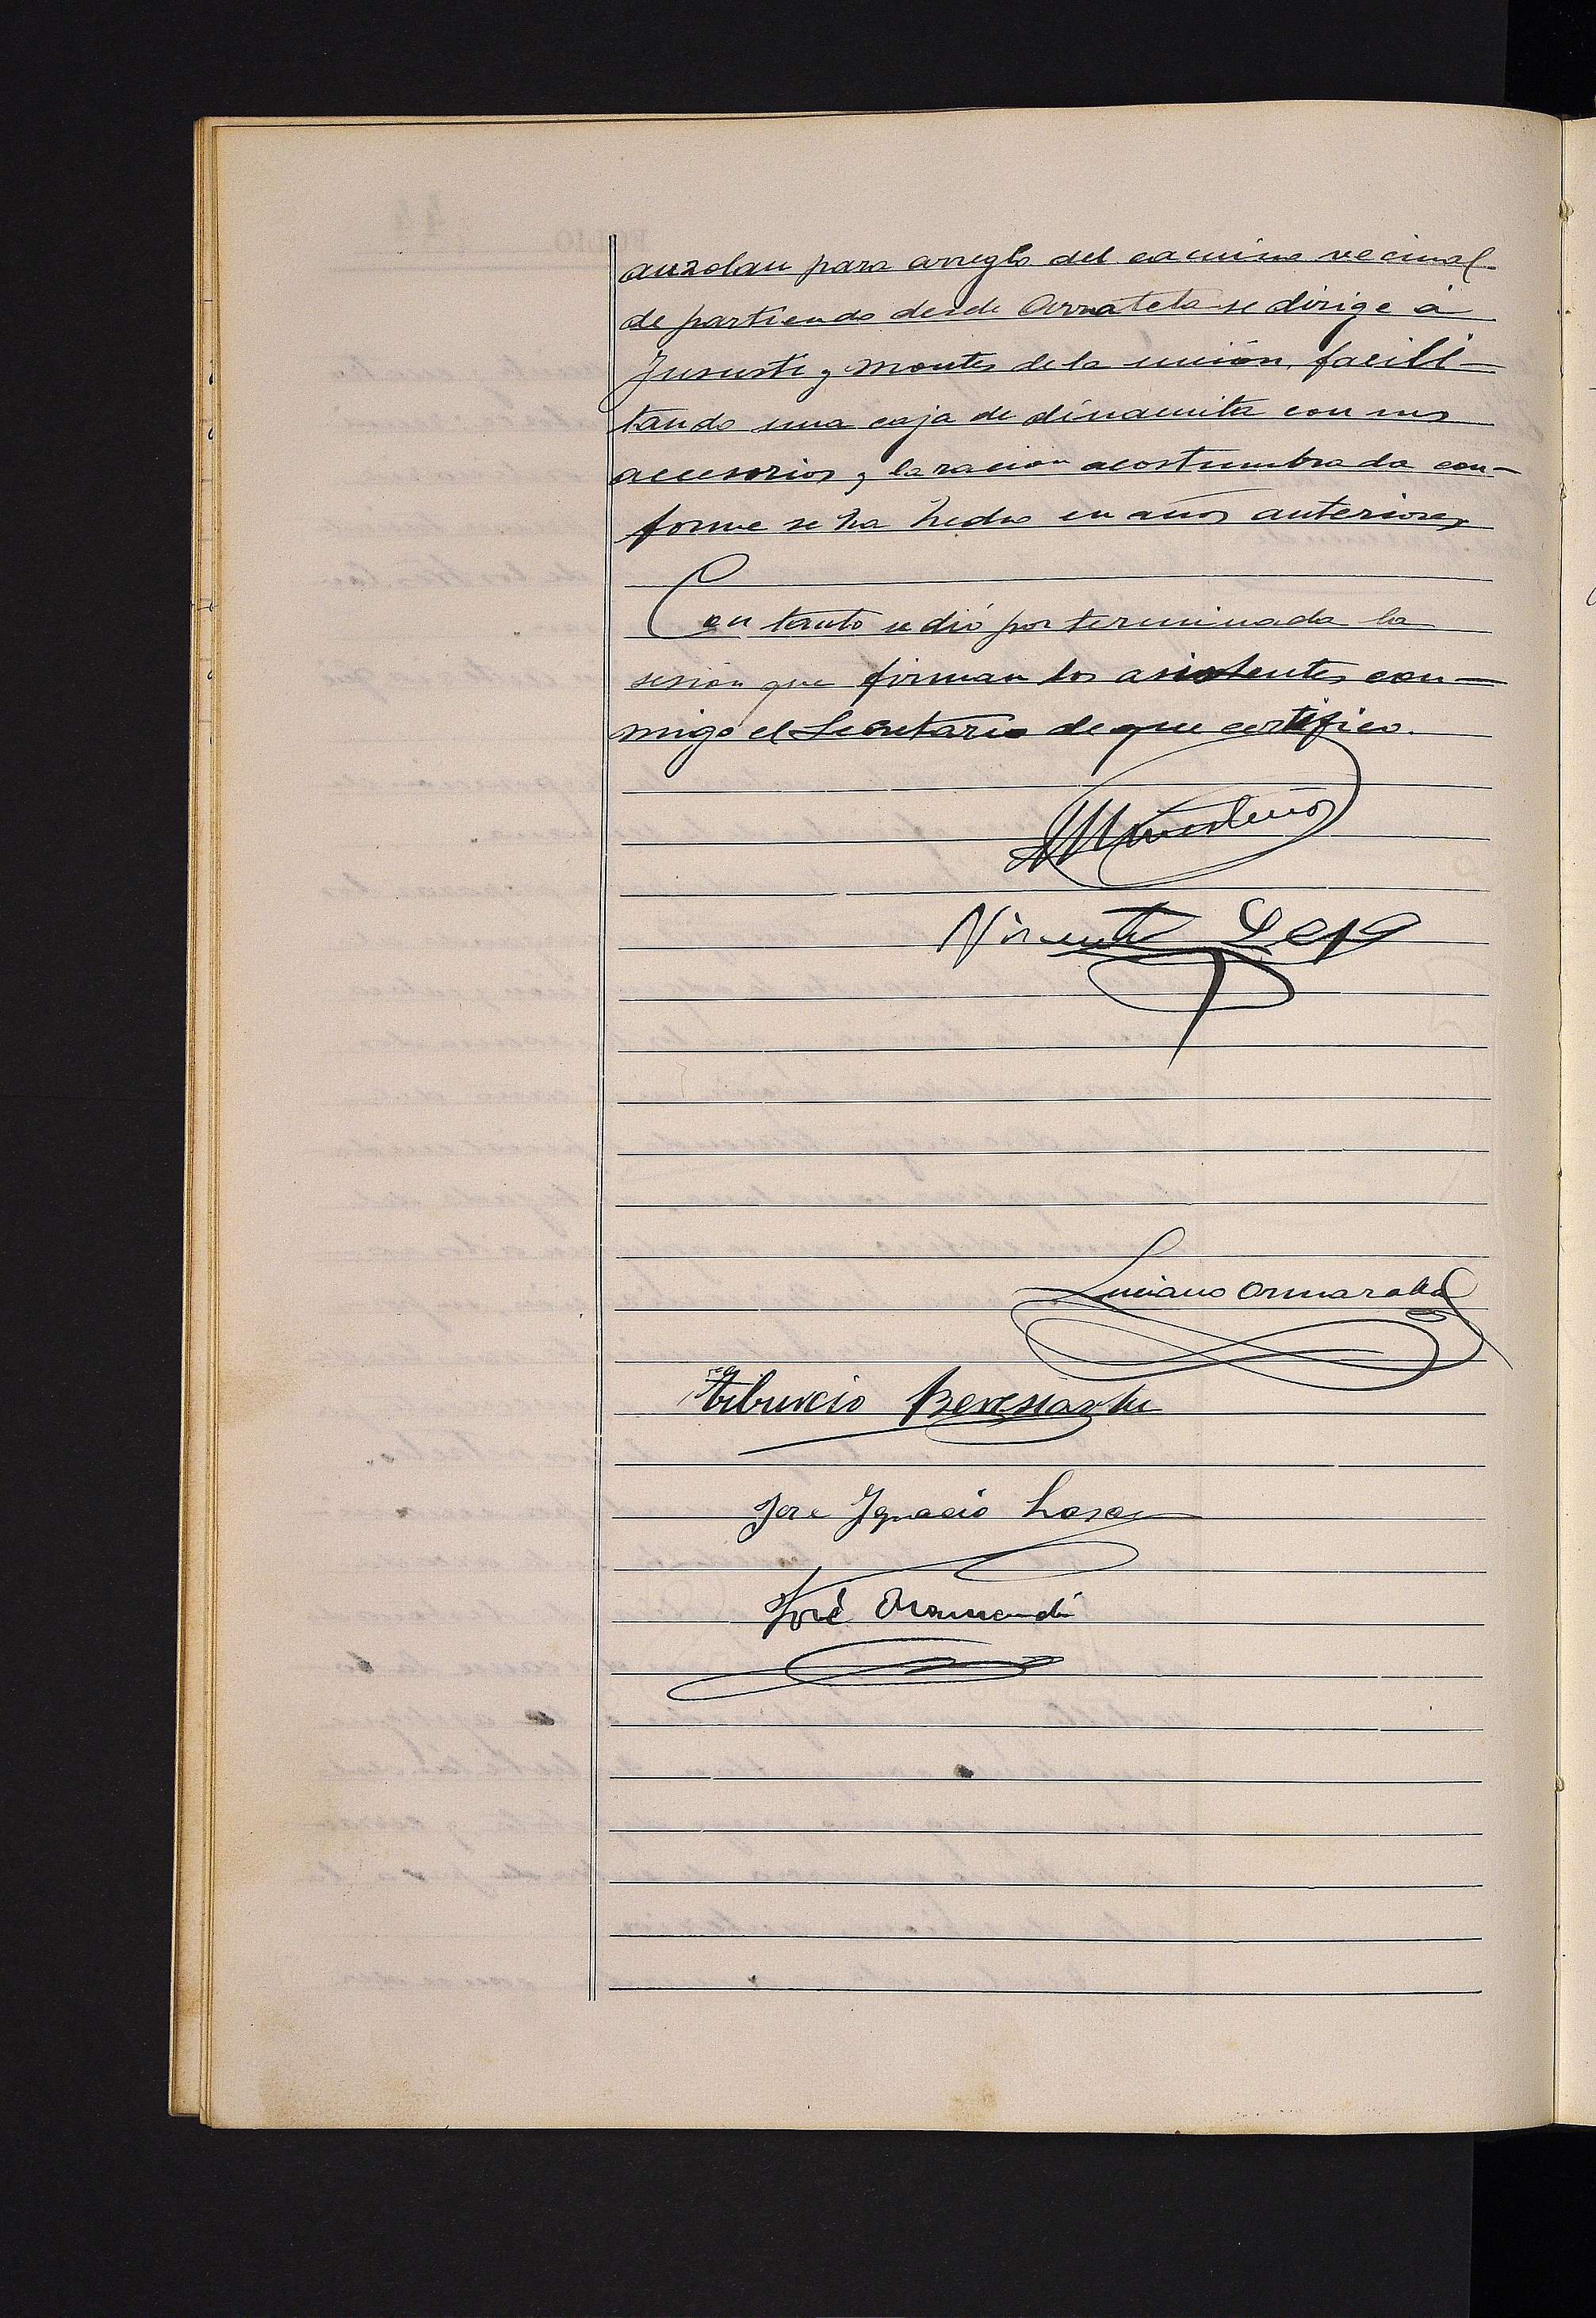 auzolan para arreglo del camino vecinal
de partiendo desde Arrateta se dirige á
y montes de la unión, facili-
tando una caja de dinamita con sus
accesorios y la racion acostumbrada con-
forme se ha hecho en años anteriores
Con tanto se dió por terminada la
sesión que firman los asistentes con-
migo el Secretario de que certifico.
Vicente
Luciano Ormazabal
Tiburcio
Jose Ignacio Lasa
José